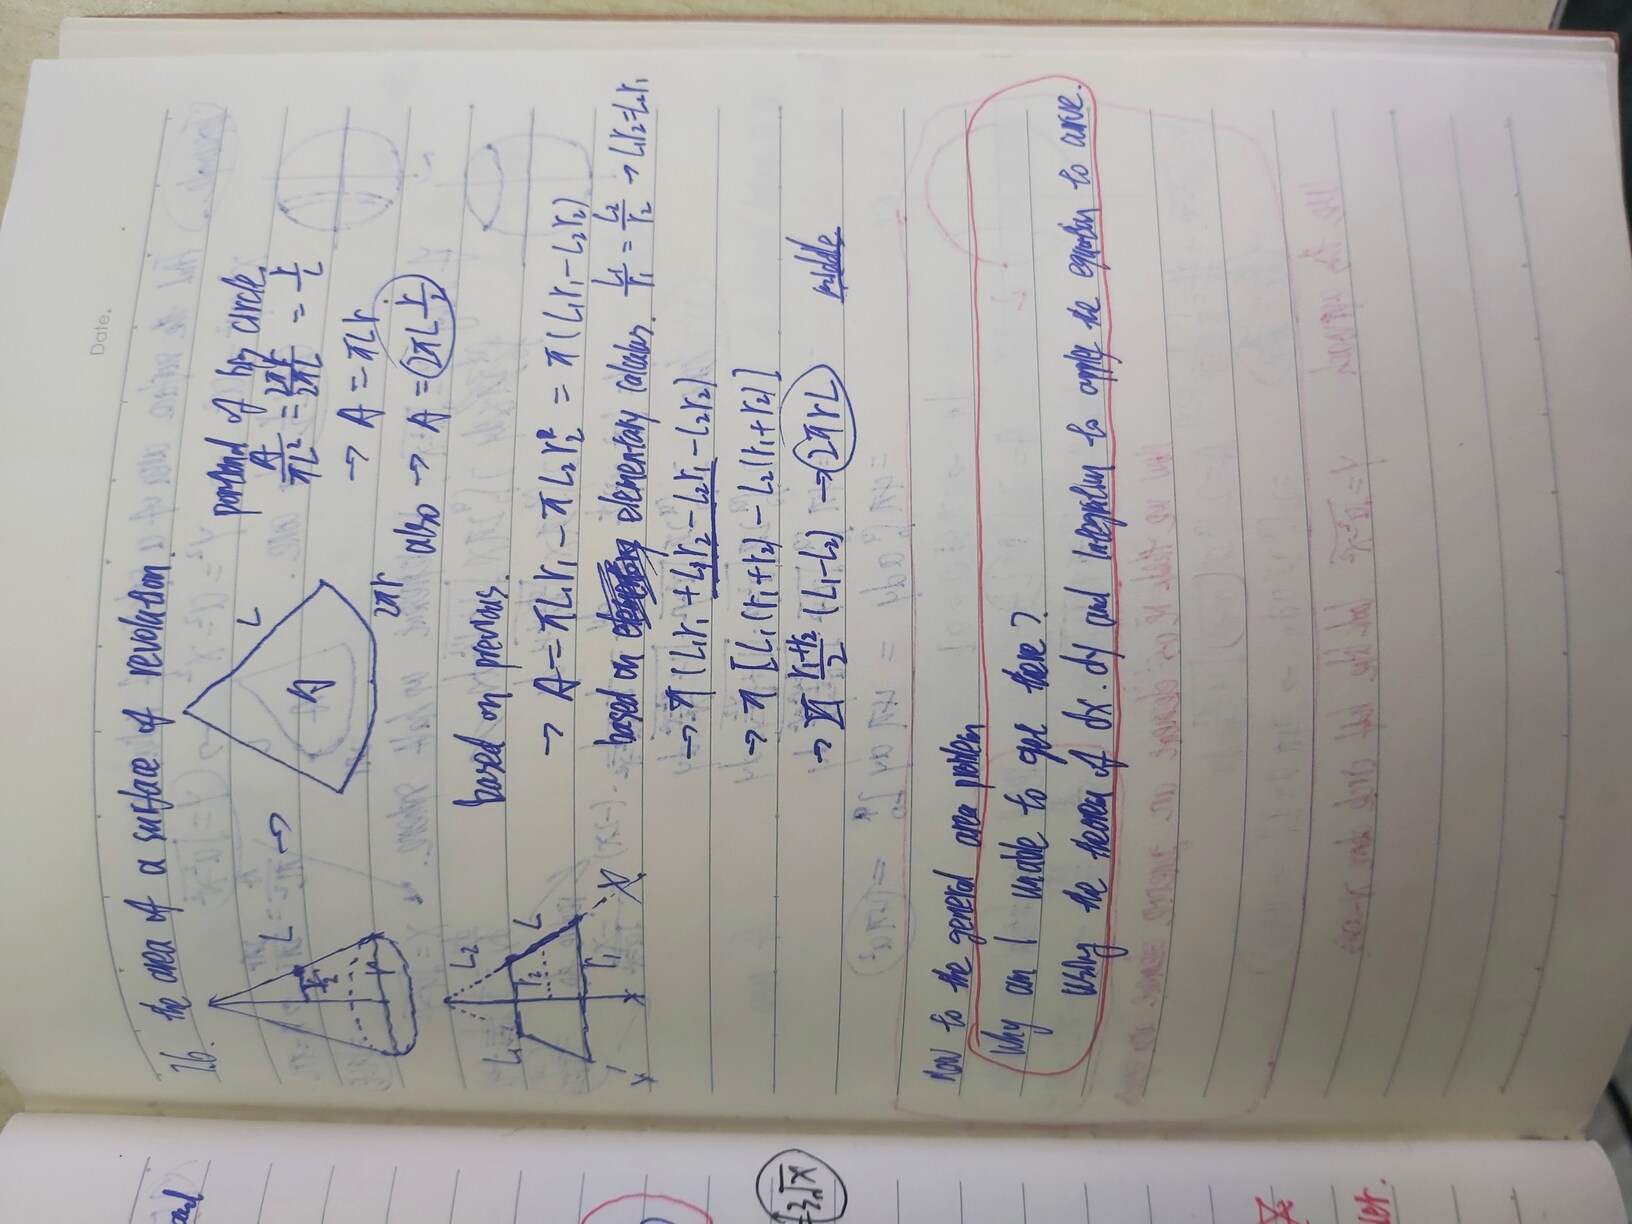 Date.
7.6. the area of a surface of revolution.
L
r/2
r
L
A
2πr
of big circle.
A/πL² = 2πr/2πL = r/L
→ A = πLr.
also → A = 2πL r/2
L₁
L₂
r₂
L
r₁
based on previous.
→ A = πL₁r₁ - πL₂r₂ = π(L₁r₁-L₂r₂)
based on elementary calculus. L₁/r₁ = L₂/r₂ → L₁r₂=L₂r₁
→ π(L₁r₁ + L₁r₂ - L₂r₁ - L₂r₂)
→ π [L₁(r₁+r₂) - L₂(r₁+r₂)]
→ (r₁+r₂)/2 (L₁-L₂) → 2πrL middle
Now to the general area problem
Why am I unable to get there?
using the theorem of dx. dy and integration to apply the equation to curve.
3√x